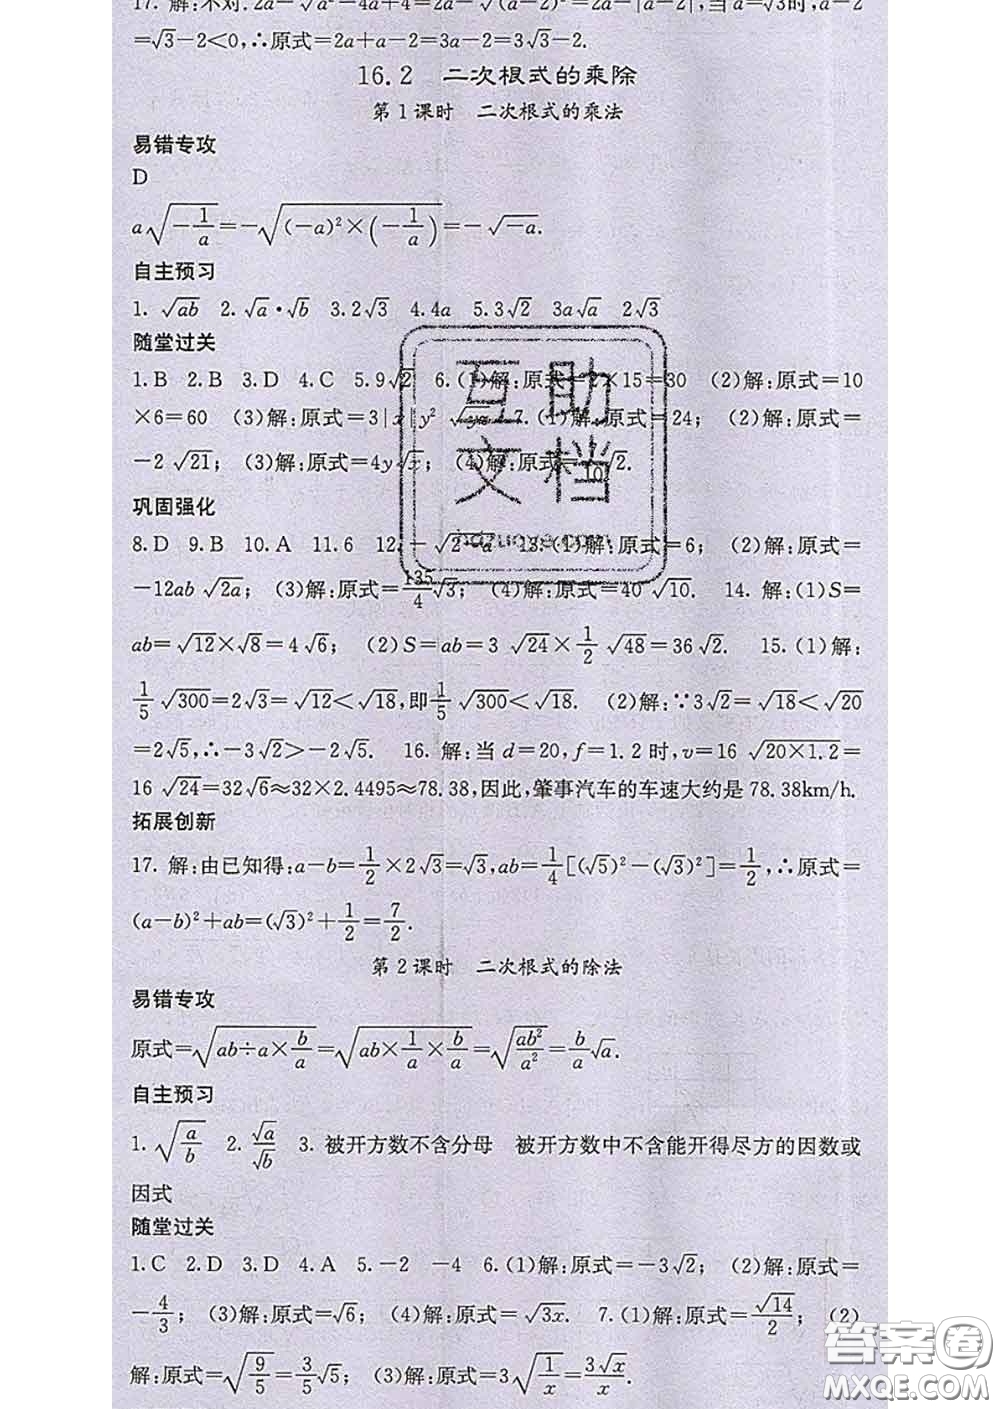 17. 解:不对.2a-√(a²-4a+4)=2a-√((a-2)²)=2a-|a-2|,当a=√3时,a-2
=√3-2<0,∴原式=2a+a-2=3a-2=3√3-2.
16.2 二次根式的乘除
第1课时 二次根式的乘法
易错专攻
D
a√(-1/a)=-√((-a)²×(-1/a))=-√(-a).
自主预习
1. √(ab) 2. √a·√b 3.2√3 4.4a 5.3√2 3a√a 2√3
随堂过关
1.B 2.B 3.D 4.C 5.9√2 6.(1)解:原式=2×15=30 (2)解:原式=10
×6=60 (3)解:原式=3|x|y² 7.(1)解:原式=24; (2)解:原式=
-2√21; (3)解:原式=4y√x; (4)解:原式= √2.
巩固强化
8.D 9.B 10.A 11.6 12.-√(2-a) 13.(1)解:原式=6; (2)解:原式=
-12ab√(2a); (3)解:原式=135/4√3; (4)解:原式=40√10. 14. 解:(1)S=
ab=√12×√8=4√6; (2)S=ab=3√24×1/2√48=36√2. 15. (1)解:
1/5√300=2√3=√12<√18,即1/5√300<√18. (2)解:∵3√2=√18<√20
=2√5,∴-3√2>-2√5. 16. 解:当d=20,f=1.2时,v=16√(20×1.2)=
16√24=32√6≈32×2.4495≈78.38,因此,肇事汽车的车速大约是78.38km/h.
拓展创新
17. 解:由已知得:a-b=1/2×2√3=√3,ab=1/4[(√5)²-(√3)²]=1/2,∴原式=
(a-b)²+ab=(√3)²+1/2=7/2.
第2课时 二次根式的除法
易错专攻
原式=√(ab÷a×b/a)=√(ab×1/a×b/a)=√(ab²/a²)=b/a√a.
自主预习
1. √(a/b) 2. √a/√b 3. 被开方数不含分母 被开方数中不含能开得尽方的因数或
因式
随堂过关
1.C 2.D 3.D 4.A 5.-2 -4 6.(1)解:原式=-3√2; (2)解:原式=
-4/3; (3)解:原式=√6; (4)解:原式=√(3x). 7.(1)解:原式=√14/2; (2)
解:原式=√(9/5)=3/5√5; (3)解:原式=3√(1/x)=3√x/x.
互助
文档
答案圈
MXQE.COM